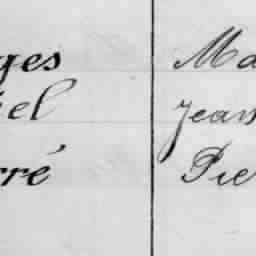 ges Ma
el Jean
rré Pie